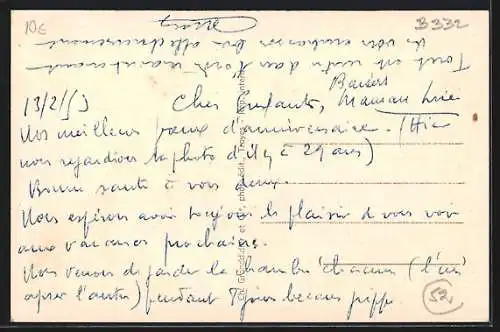 10€
B332
13/2/53
Chers Enfants,
Nos meilleurs vœux d'anniversaire. (Hier
nous regardions la photo d'il y a 29 ans)
Bonne santé à vous deux.
Nous espérons avoir toujours le plaisir de vous voir
aux vacances prochaines.
Nous venons de garder la chambre chacun (l'un
après l'autre) pendant 8 jours
Tout est rentré dans l'ordre maintenant
de vous embrasser bien affectueusement
Baisers
Maman
52